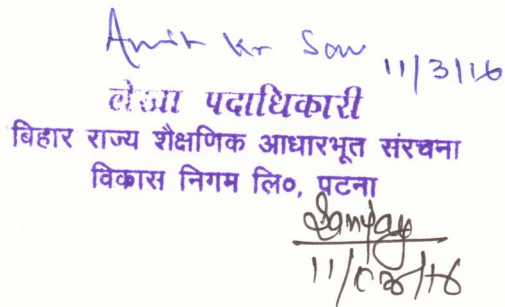 Amit Kr Saw 11/3/16
लेखा पदाधिकारी
बिहार राज्य शैक्षणिक आधारभूत संरचना
विकास निगम लि०, पटना
Sanjay
11/03/16